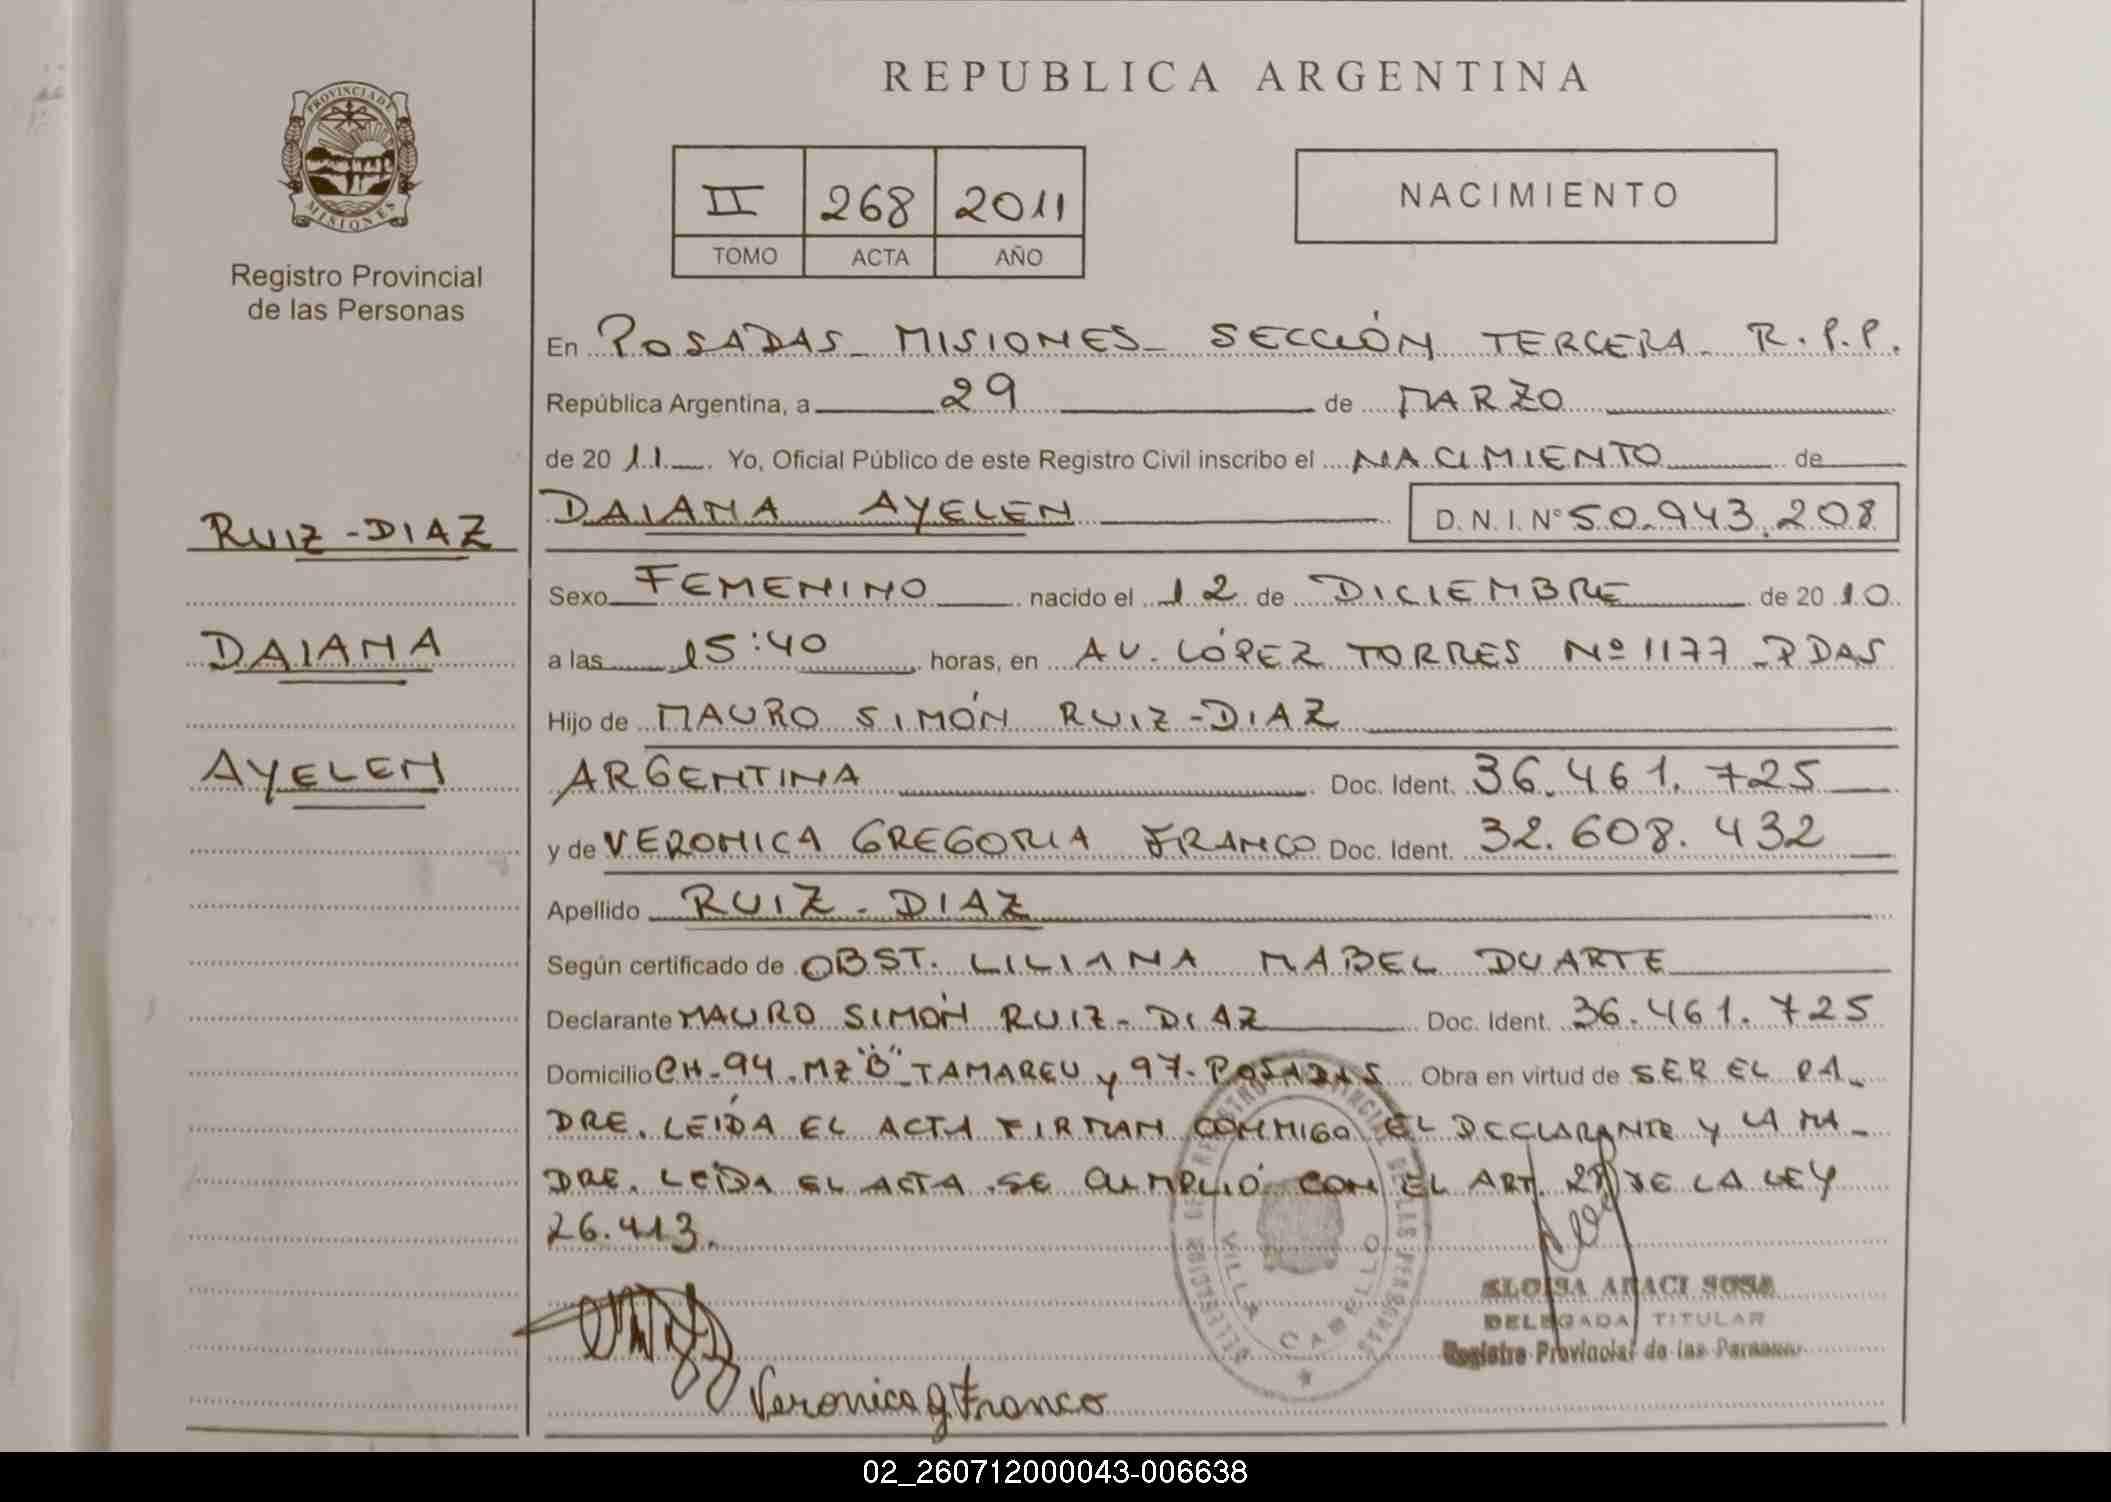 REPUBLICA ARGENTINA
PROVINCIA DE MISIONES
Registro Provincial
de las Personas
II 268 2011
TOMO ACTA AÑO
NACIMIENTO
En POSADAS - MISIONES - SECCIÓN TERCERA - R.P.P.
República Argentina, a 29 de MARZO
de 2011. Yo, Oficial Público de este Registro Civil inscribo el NACIMIENTO de
DAIANA AYELEN D.N.I. Nº 50.943.208
RUIZ-DIAZ
DAIANA
AYELEN
Sexo FEMENINO nacido el 12 de DICIEMBRE de 2010
a las 15:40 horas, en AV. LÓPEZ TORRES Nº 1177 - PDAS
Hijo de MAURO SIMÓN RUIZ-DIAZ
ARGENTINA Doc. Ident. 36.461.725
y de VERONICA GREGORIA FRANCO Doc. Ident. 32.608.432
Apellido RUIZ-DIAZ
Según certificado de OBST. LILIANA MABEL DUARTE
Declarante MAURO SIMÓN RUIZ-DIAZ Doc. Ident. 36.461.725
Domicilio CH-94. MZ "B" - TAMAREU y 97-POSADAS Obra en virtud de SER EL PA-
DRE. LEÍDA EL ACTA FIRMAN CONMIGO EL DECLARANTE Y LA MA-
DRE. LEÍDA EL ACTA SE CUMPLIÓ CON EL ART. DE LA LEY
26.413.
VILLA CABELLO
ELOISA ARACI SOSA
DELEGADA TITULAR
Registro Provincial de las Personas
Veronica g. Franco
02_260712000043-006638